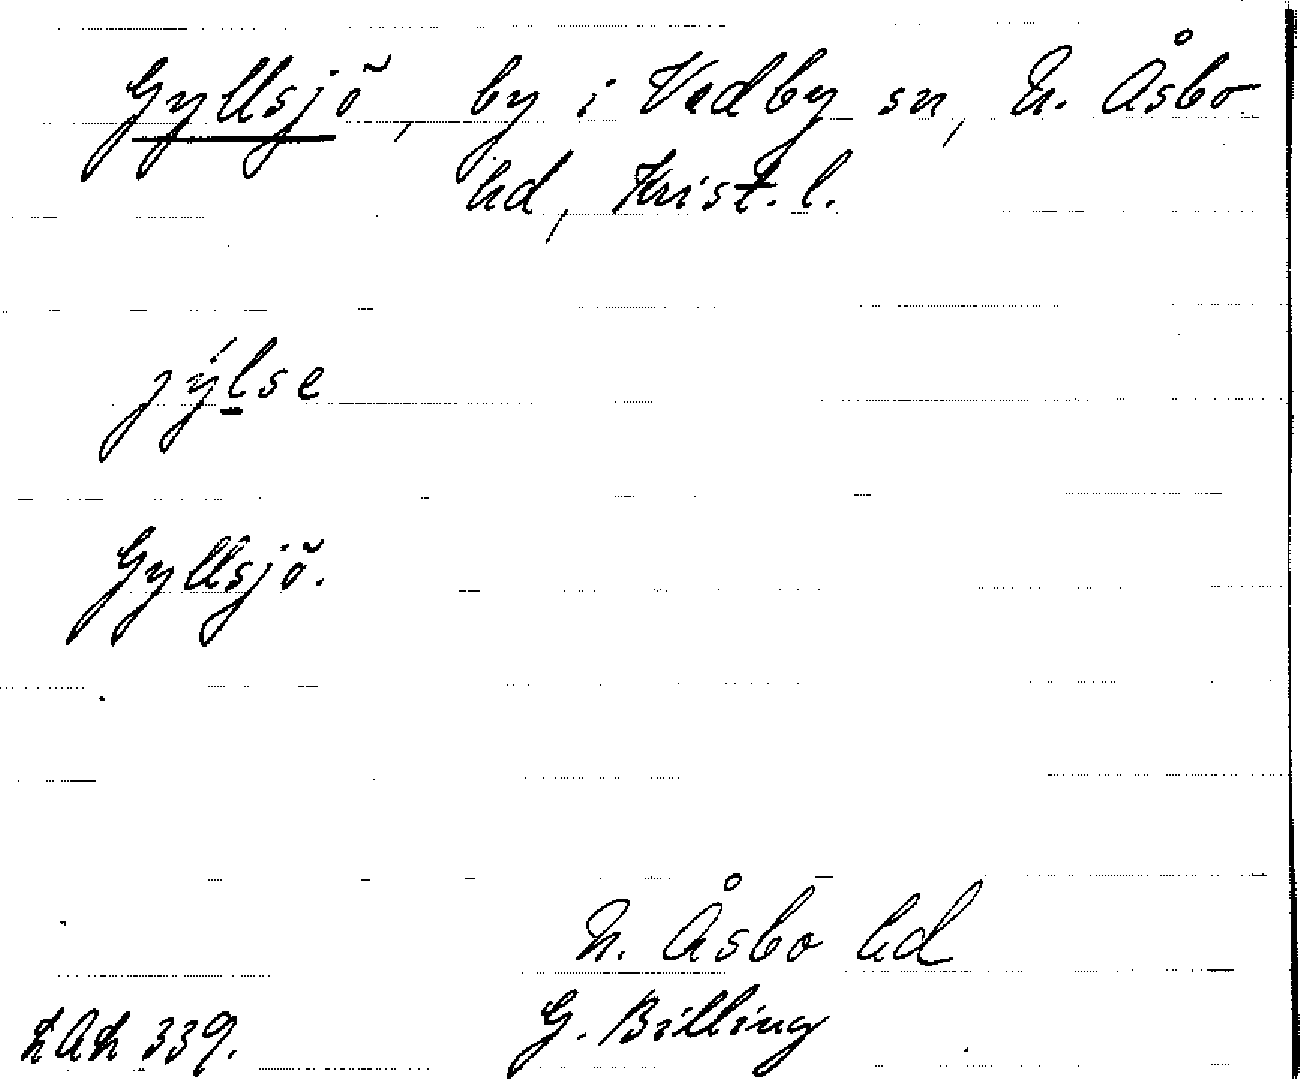 Gyllsjö, by i Vedby sn, N. Åsbo
hd, Krist. l.
jýlse
Gyllsjö.
N. Åsbo hd
LAL 339. G. Billing